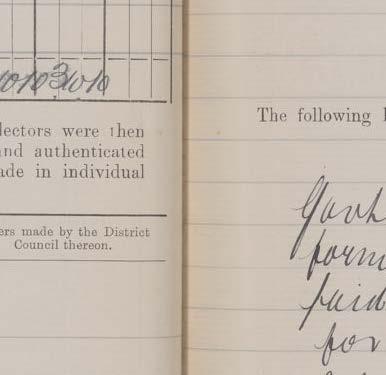 lectors were then
and authenticated
ade in individual
ers made by the District
Council thereon.
The following
form
paid
for